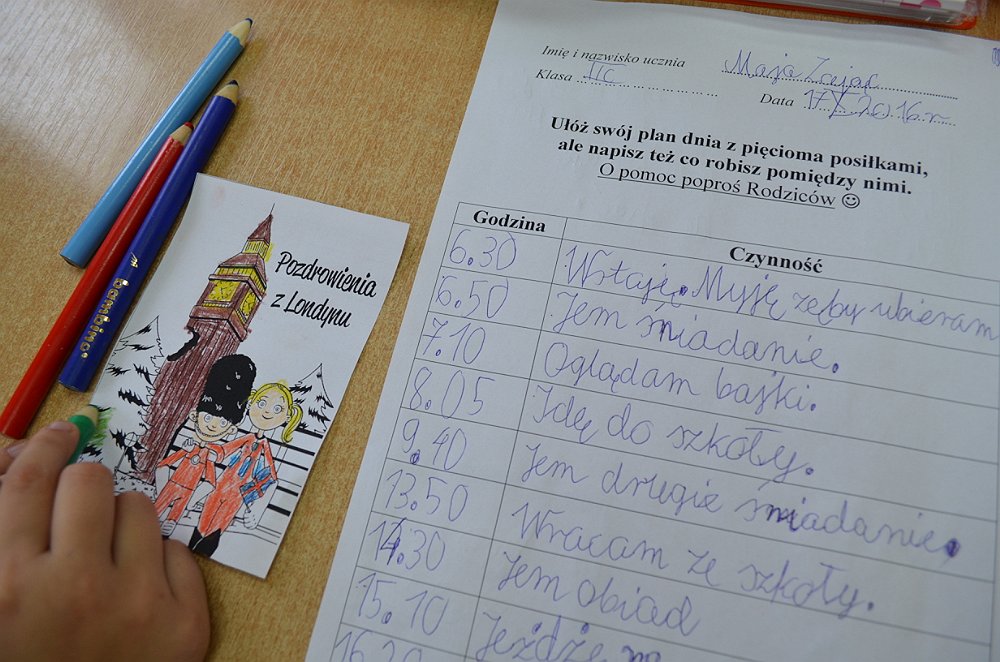 Imię i nazwisko ucznia Maja Zając
Klasa IIc Data 17 X 2016 r.
Ułóż swój plan dnia z pięcioma posiłkami,
ale napisz też co robisz pomiędzy nimi.
O pomoc poproś Rodziców ☺
Godzina Czynność
6.30 Wstaję. Myję zęby ubieram
6.50 Jem śniadanie.
7.10 Oglądam bajki.
8.05 Idę do szkoły.
9.40 Jem drugie śniadanie.
13.50 Wracam ze szkoły.
14.30 Jem obiad
15.10 Jeżdżę na
16.20
Pozdrowienia
z Londynu
bambino